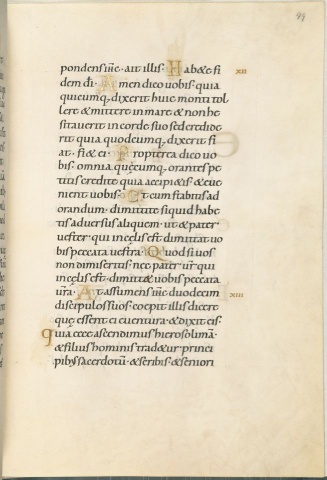 99
pondens iħc · ait illis · Habete fi XII
dem dī · Amen dico uobis · quia
quicumq; dixerit huic monti tol
lere & mittere in mare & non he
sitauerit in corde suo sed credide
rit quia quodcumq; dixerit fi
at · fi& ei · Propterea dico uo
bis · omnia quęcumq; orantes pe
titis credite quia accipi&is · & eue
nient uobis · Et cum stabitis ad
orandum · dimittite siquid habe
tis aduersus aliquem · ut & pater
uester · qui in cęlis est dimittat uo
bis peccata uestra · Quod si uos
non dimiseritis · nec pater ur̄ qui
in cęlis est · dimitt& uobis peccata
ur̄a · At assumens iħc duodecim XIII
discipulos suos · coepit illis dicere
quę essent ei euentura · & dixit eis ·
quia ecce ascendimus hierosolimā ·
& filius hominis trad&ur princi
pib; sacerdotū · & scribis · & seniori